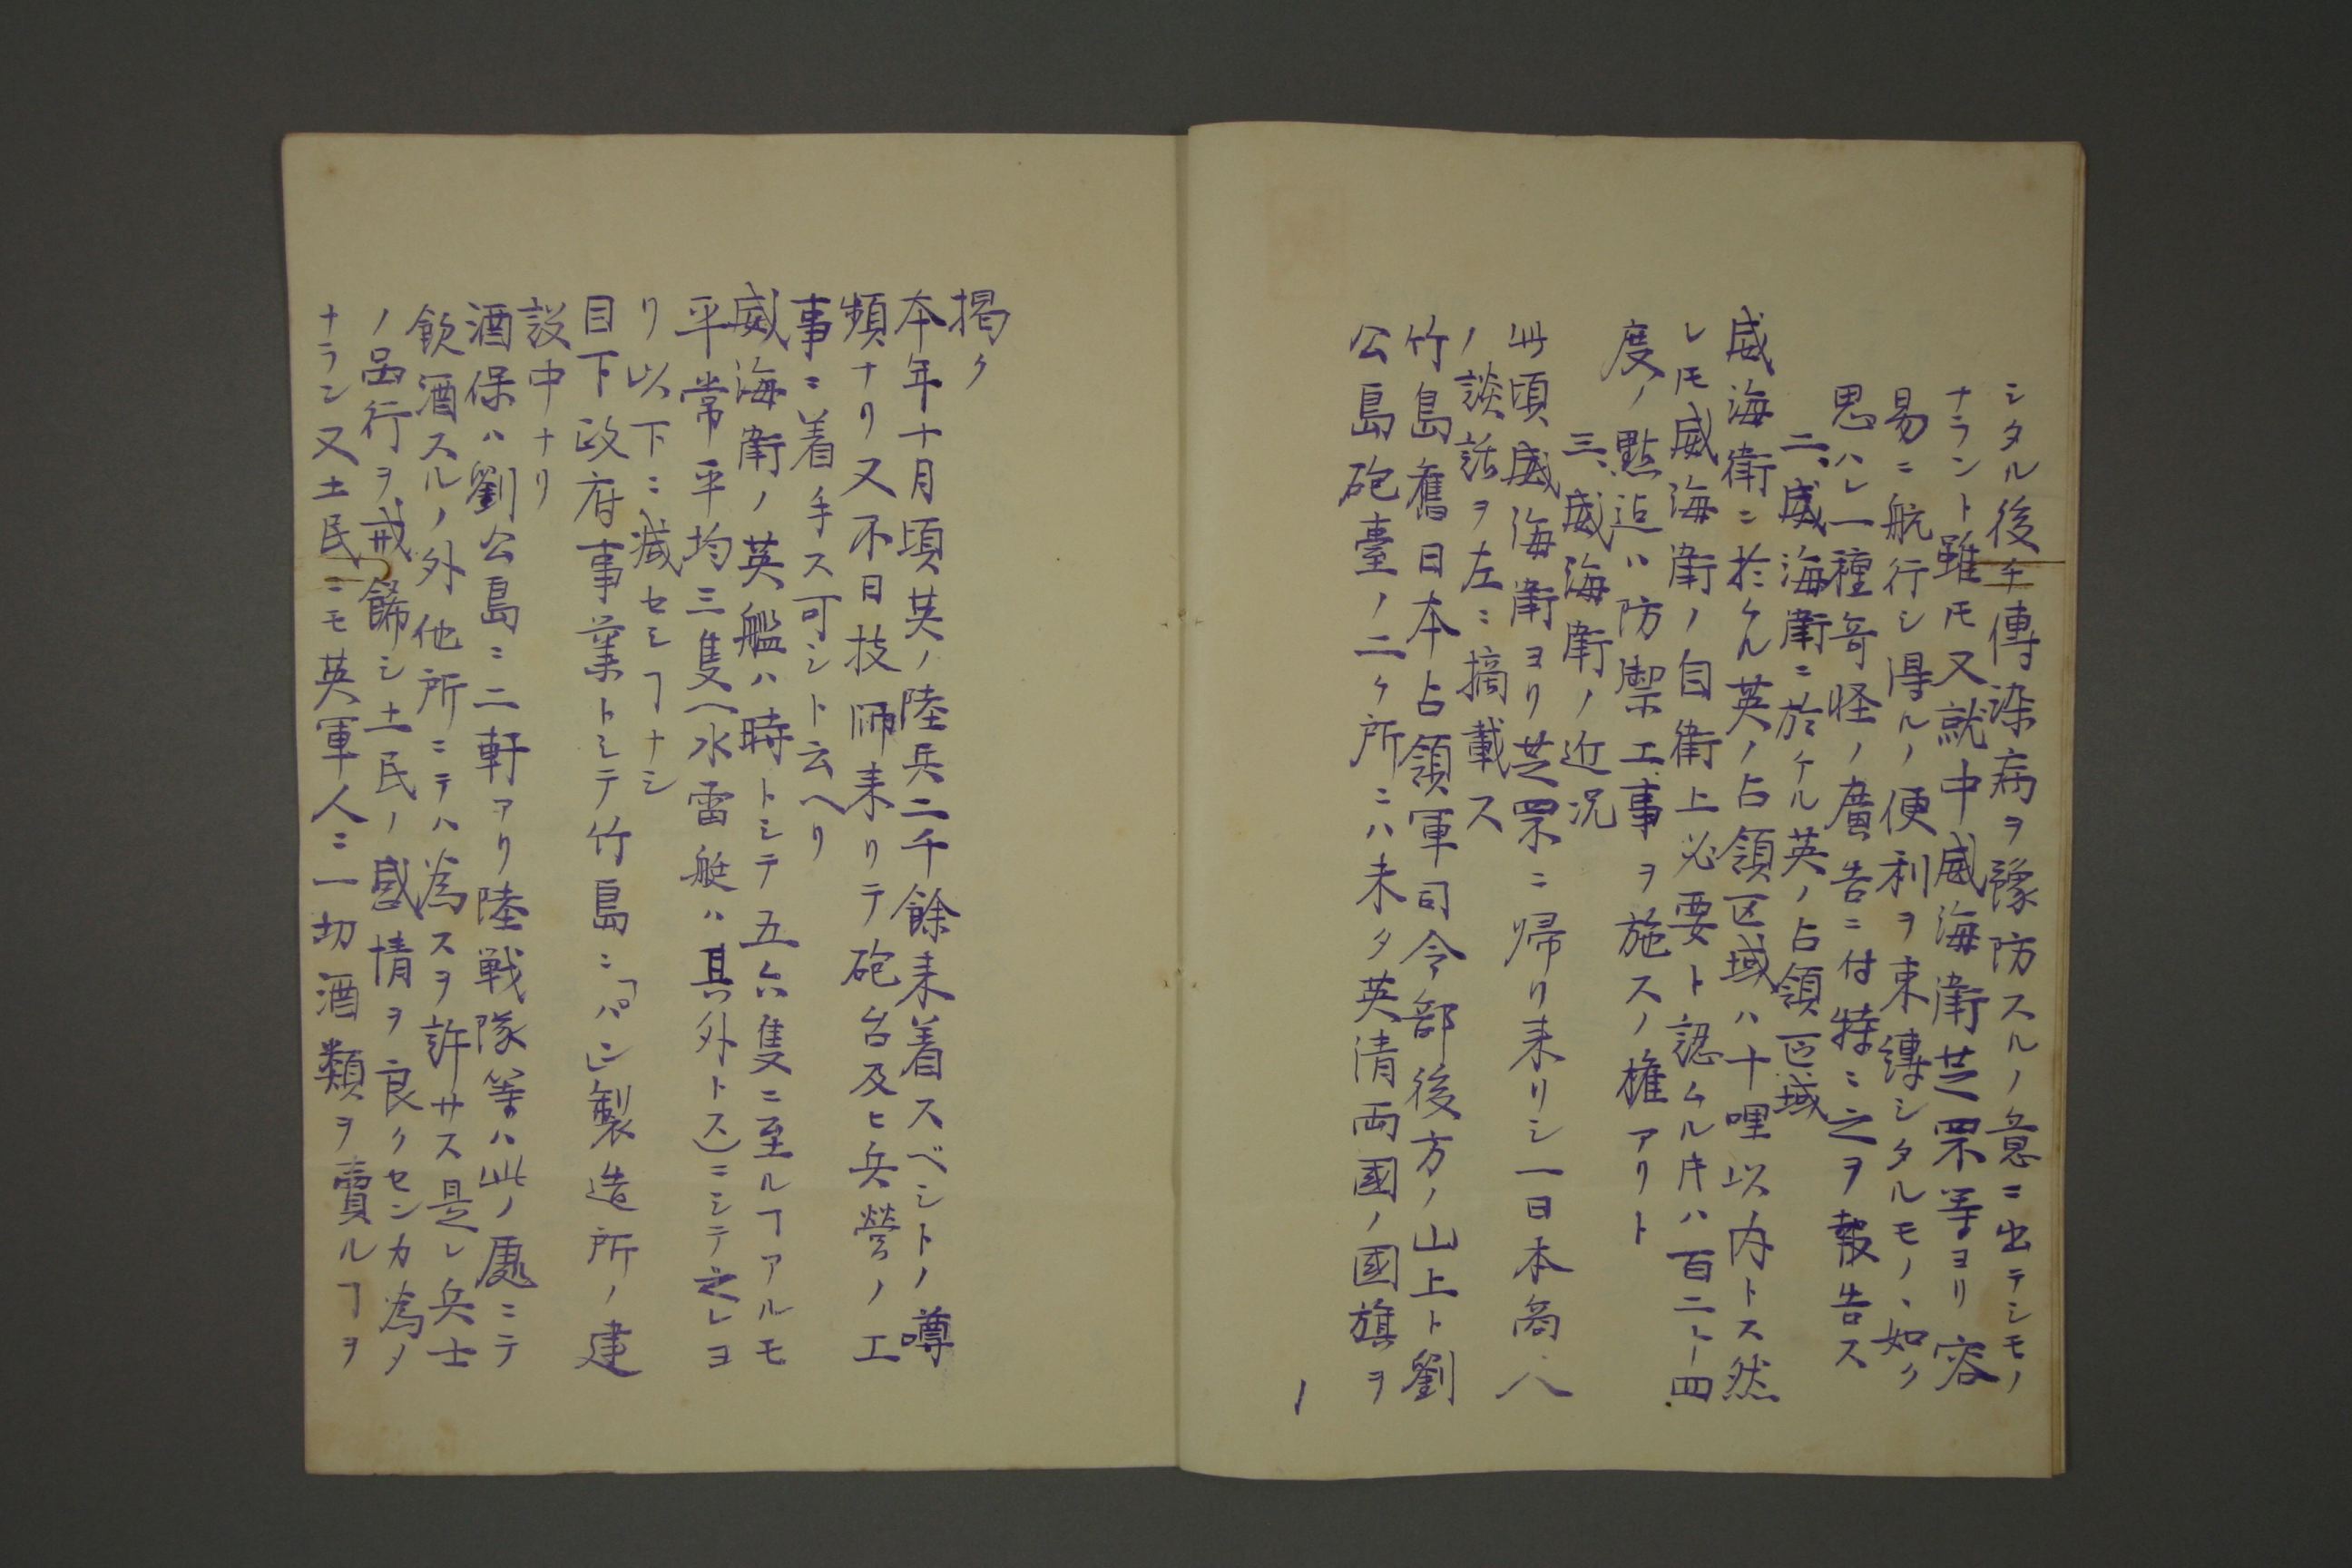 シタル後チ傳染病ヲ豫防スルノ意ニ出テシモノ
ナラント雖モ又就中威海衛芝罘等ヨリ容
易ニ航行シ得ルノ便利ヲ束縛シタルモノヽ如ク
思ハレ一種奇怪ノ廣告ニ付特ニ之ヲ報告ス
二、威海衛ニ於ケル英ノ占領区域
威海衛ニ於ケル英ノ占領区域ハ十哩以内トス然
レ𪜈威海衛ノ自衛上必要ト認ムル𬼀ハ百二十四
度ノ點迠ハ防禦工事ヲ施スノ権アリト
三、威海衛ノ近况
此頃威海衛ヨリ芝罘ニ帰リ来リシ一日本商人
ノ談話ヲ左ニ摘載ス
竹島舊日本占領軍司令部後方ノ山上ト劉
公島砲臺ノ二ケ所ニハ未タ英清両國ノ國旗ヲ
掲ク
本年十月頃英ノ陸兵二千餘来着スベシトノ噂
頻ナリ又不日技師来リテ砲台及ヒ兵營ノ工
事ニ着手ス可シト云ヘリ
威海衛ノ英艦ハ時トシテ五六隻ニ至ルヿアルモ
平常平均三隻(水雷艇ハ其外トス)ニシテ之レヨ
リ以下ニ減セシヿナシ
目下政府事業トシテ竹島ニ「パン」製造所ノ建
設中ナリ
酒保ハ劉公島ニ二軒アリ陸戦隊等ハ此ノ處ニテ
飲酒スルノ外他所ニテハ為スヲ許サス是レ兵士
ノ品行ヲ戒飾シ土民ノ感情ヲ良クセンカ為メ
ナラン又土民ニモ英軍人ニ一切酒類ヲ賣ルヿヲ